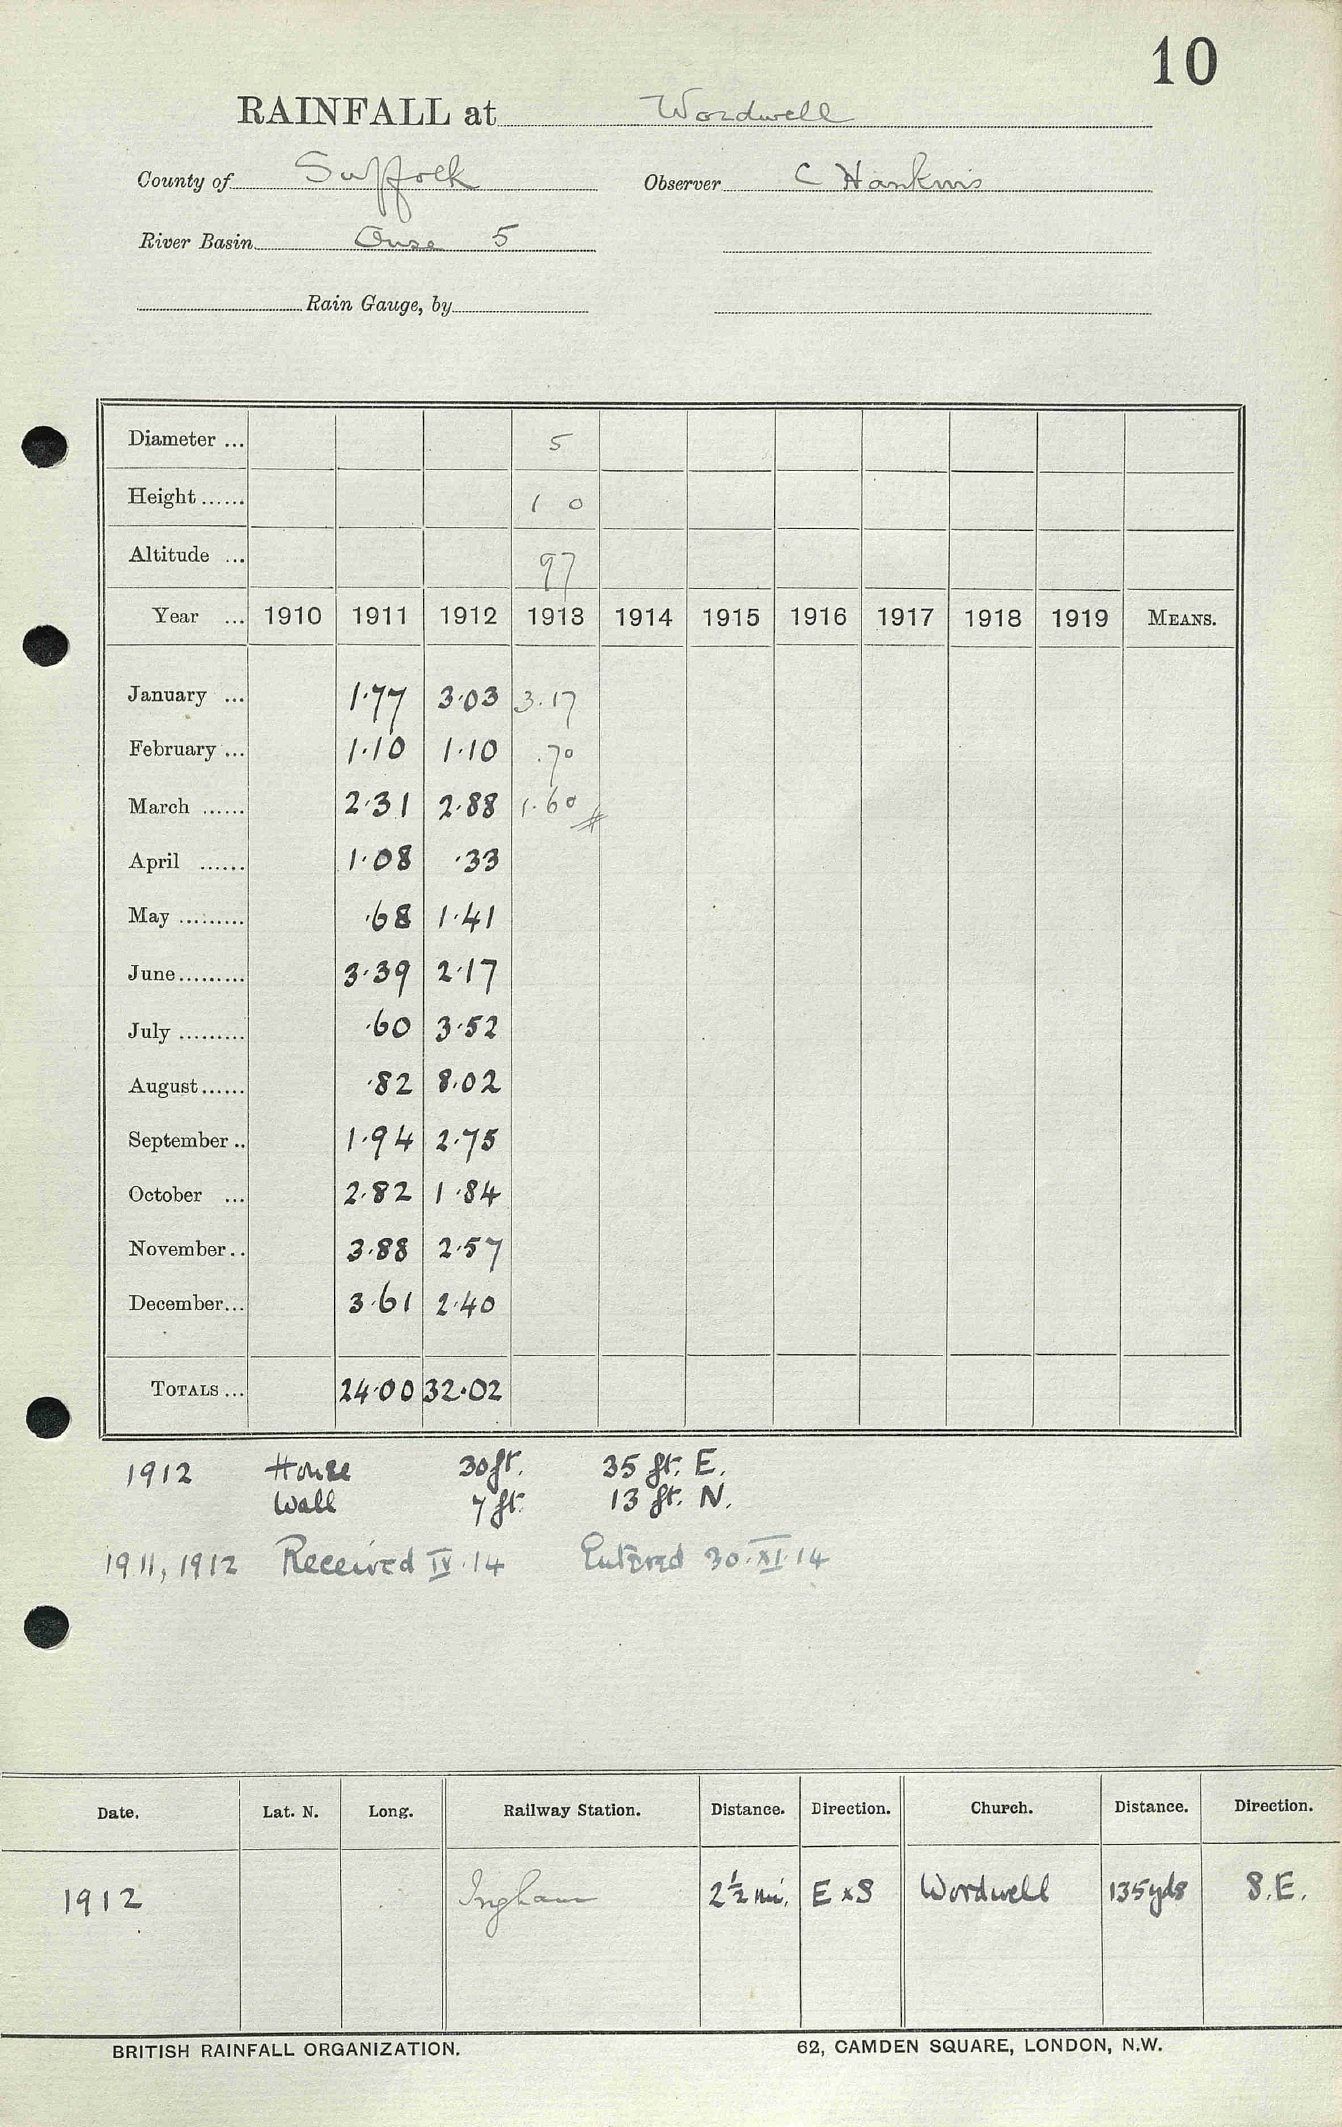 10
RAINFALL at Wordwell
County of Suffolk Observer C Hankins
River Basin Ouse 5
Rain Gauge, by
Diameter ... 5
Height ...... 1 0
Altitude ... 97
Year ... 1910 1911 1912 1913 1914 1915 1916 1917 1918 1919 MEANS.
January ... 1.77 3.03 3.17
February ... 1.10 1.10 .70
March ...... 2.31 2.88 1.60
April ...... 1.08 .33
May ......... .68 1.41
June......... 3.39 2.17
July ......... .60 3.52
August...... .82 8.02
September .. 1.94 2.75
October ... 2.82 1.84
November.. 3.88 2.57
December... 3.61 2.40
TOTALS ... 24.00 32.02
1912 House 30 ft. 35 ft. E.
Wall 7 ft. 13 ft. N.
1911, 1912 Received IV.14 Entered 30.XI.14
Date. Lat. N. Long. Railway Station. Distance. Direction. Church. Distance. Direction.
1912 Ingham 2½ mi. E x S Wordwell 135 yds S.E.
BRITISH RAINFALL ORGANIZATION. 62, CAMDEN SQUARE, LONDON, N.W.